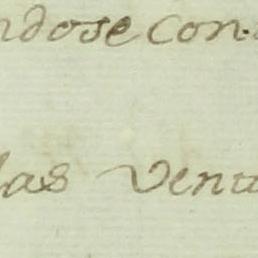 ndose con
las venu